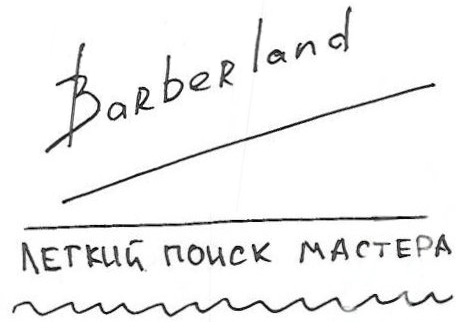 Barberland
ЛЕГКИЙ ПОИСК МАСТЕРА